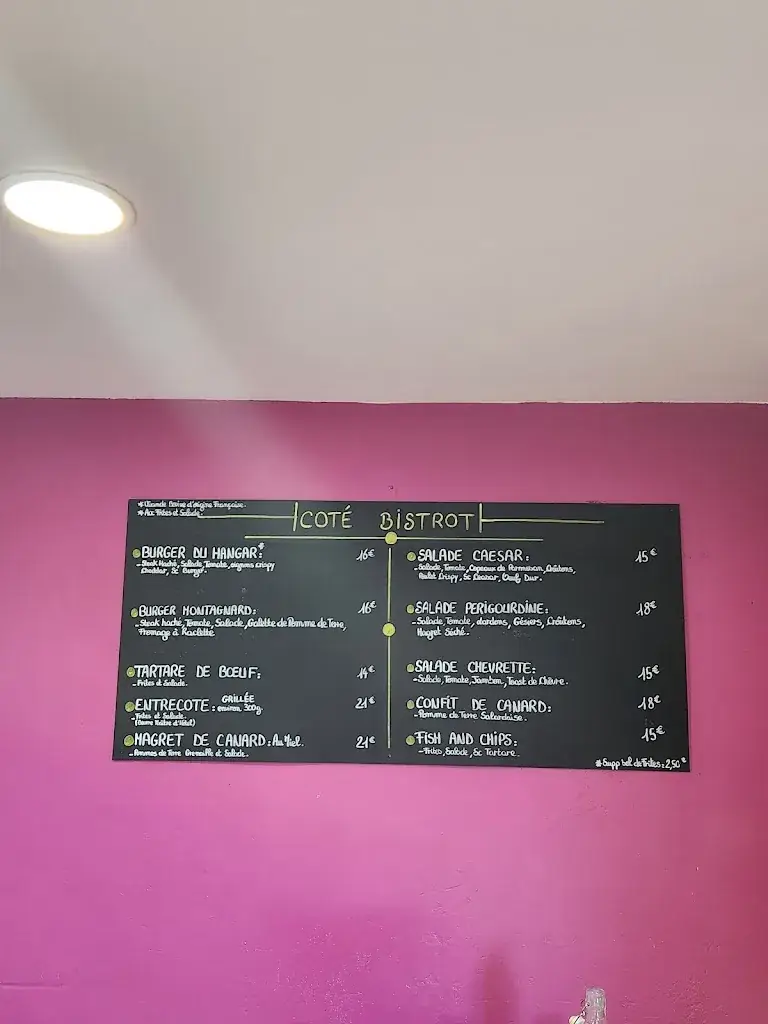 *Viande Bovine d'origine Française.
* Avec Frites et Salade
COTÉ BISTROT
BURGER DU HANGAR:* 16€
- Steak Haché, Salade, Tomate, oignons crispy
Cheddar, Sc Burger.
BURGER MONTAGNARD: 16€
- Steak haché, Tomate, Salade, Galette de Pomme de Terre,
Fromage à Raclette
TARTARE DE BŒUF: 14€
- Frites et Salade.
ENTRECOTE: GRILLÉE environ 300g. 21€
- Frites et Salade.
(Beurre Maître d'Hôtel)
MAGRET DE CANARD: Au Miel. 21€
- Pommes de Terre Grenaille et Salade.
SALADE CAESAR: 15€
- Salade, Tomate, Copeaux de Parmesan, Croûtons,
Poulet Crispy, Sc Caesar, Oeuf Dur.
SALADE PERIGOURDINE: 18€
- Salade, Tomate, Lardons, Gésiers, Croûtons,
Magret Séché.
SALADE CHEVRETTE: 15€
- Salade, Tomate, Jambon, Toast de Chèvre.
CONFIT DE CANARD: 18€
- Pomme de Terre Salardaise.
FISH AND CHIPS: 15€
- Frites, Salade, Sc Tartare
* Supp bol de Frites: 2,50€